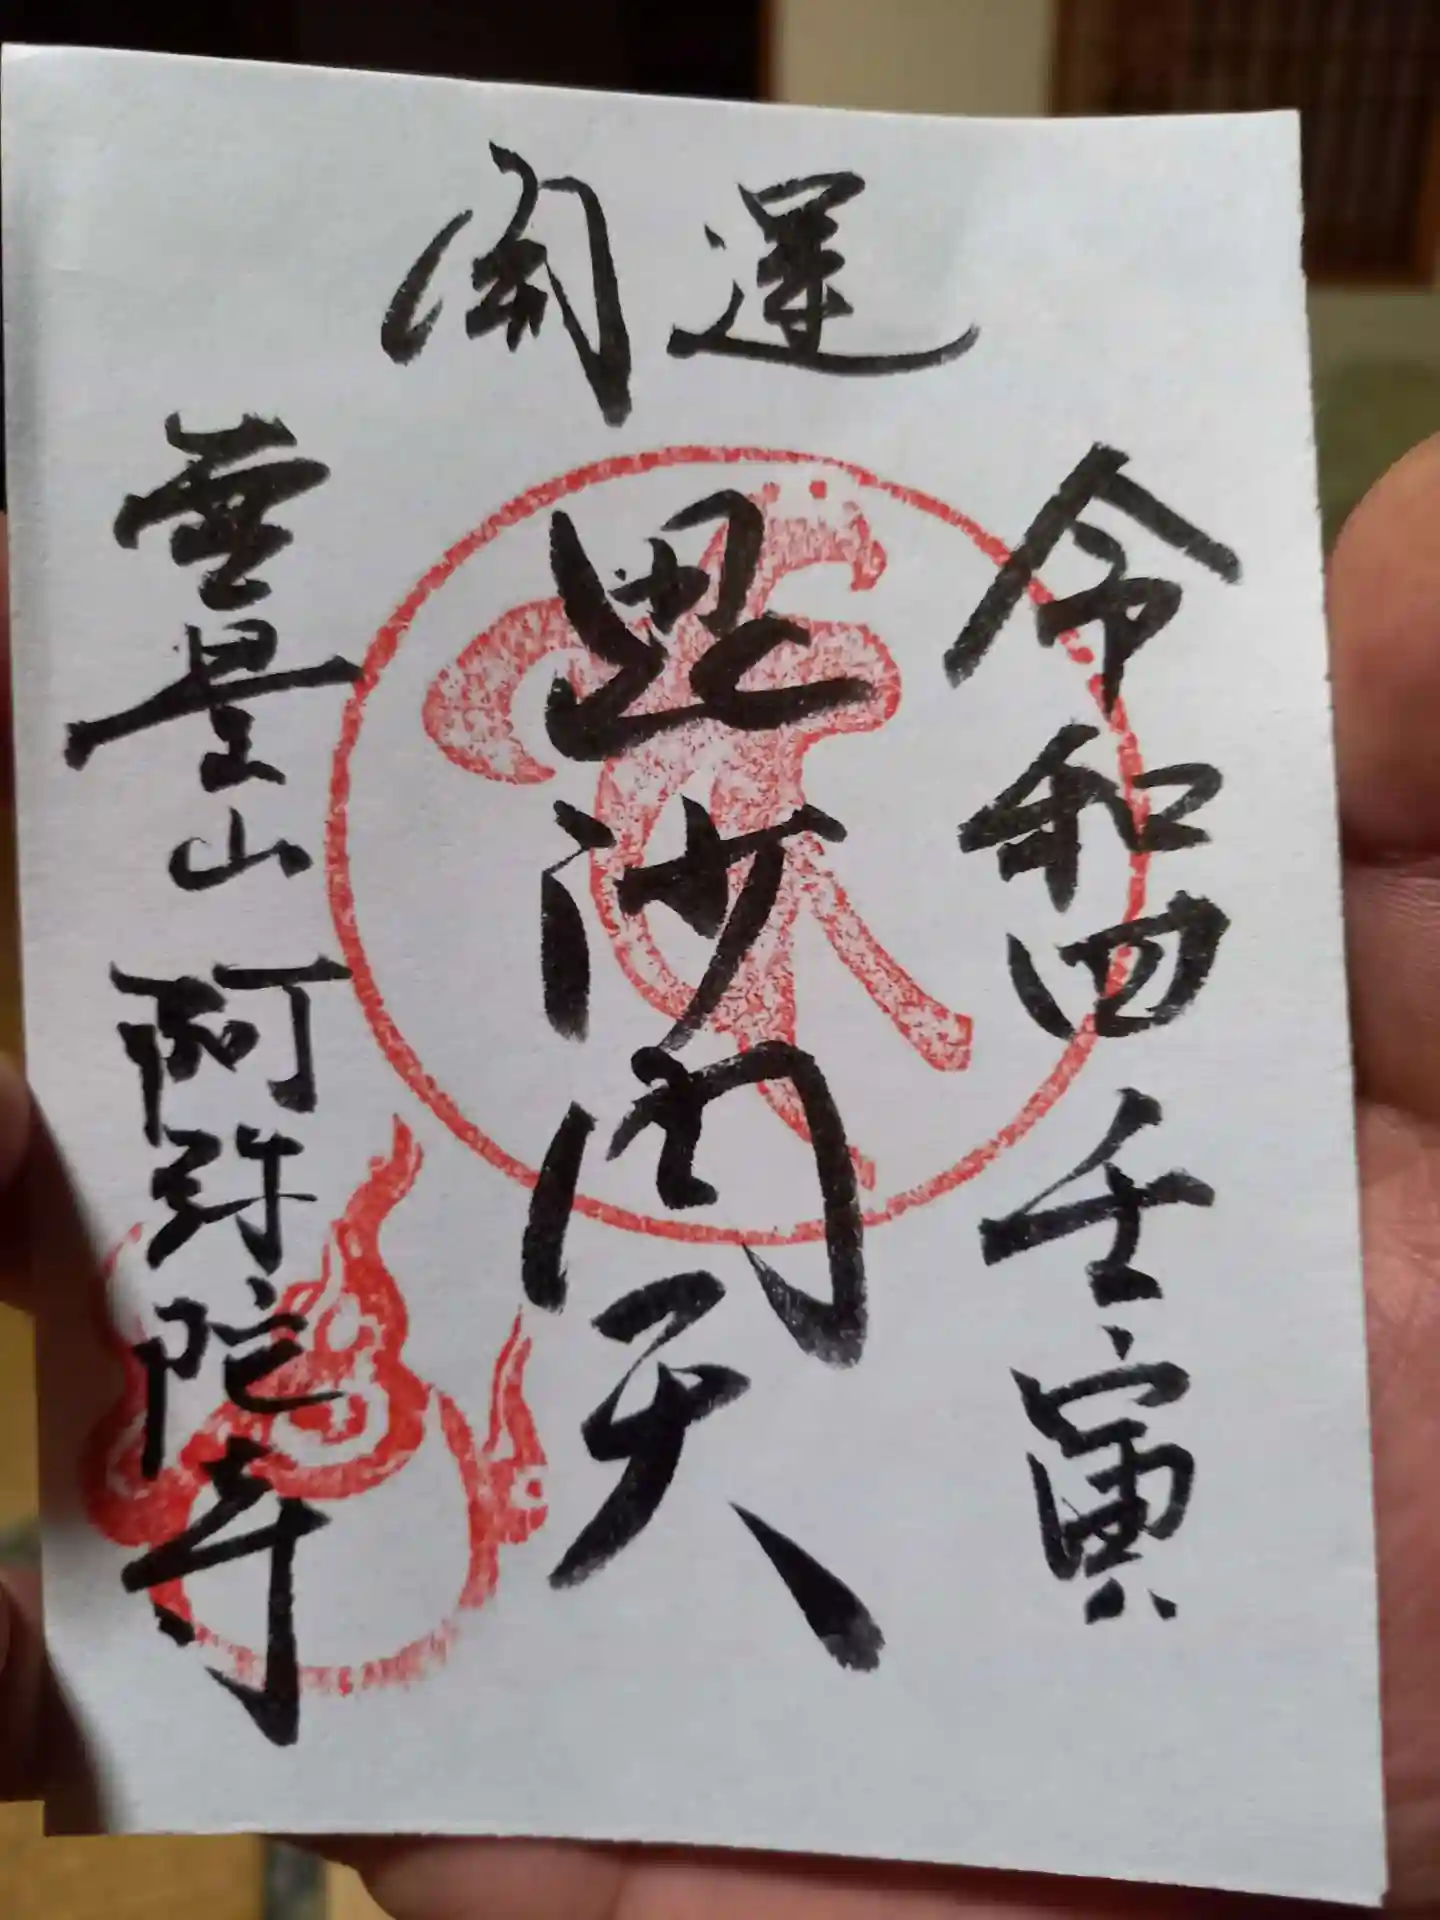 開運
令和四壬寅
毘沙門天
無量山 阿弥陀寺